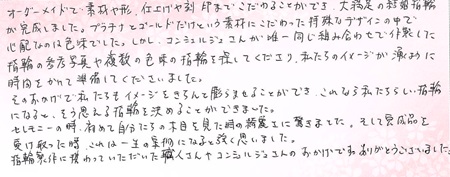 オーダーメイドで素材や形、仕上げや刻印までこだわることができ、大満足の結婚指輪
が完成しました。プラチナとゴールドだけという素材にこだわった特殊なデザインの中で
心配なのは色味でした。しかし、コンシェルジュさんが唯一同じ組み合わせで作製した
指輪の参考写真や複数の色味の指輪を探してくださり、私たちのイメージが湧くように
時間をかけて準備してくださいました。
そのおかげで私たちもイメージをきちんと膨らませることができ、これなら私たちらしい指輪
になると、そう思える指輪を決めることができました。
セレモニーの時、初めて自分たちの木目を見た時の綺麗さに驚きました。そして完成品を
受け取った時、これは一生の宝物になると強く思いました。
指輪製作に携わっていただいた職人さんやコンシェルジュさんのおかげです。ありがとうございました。